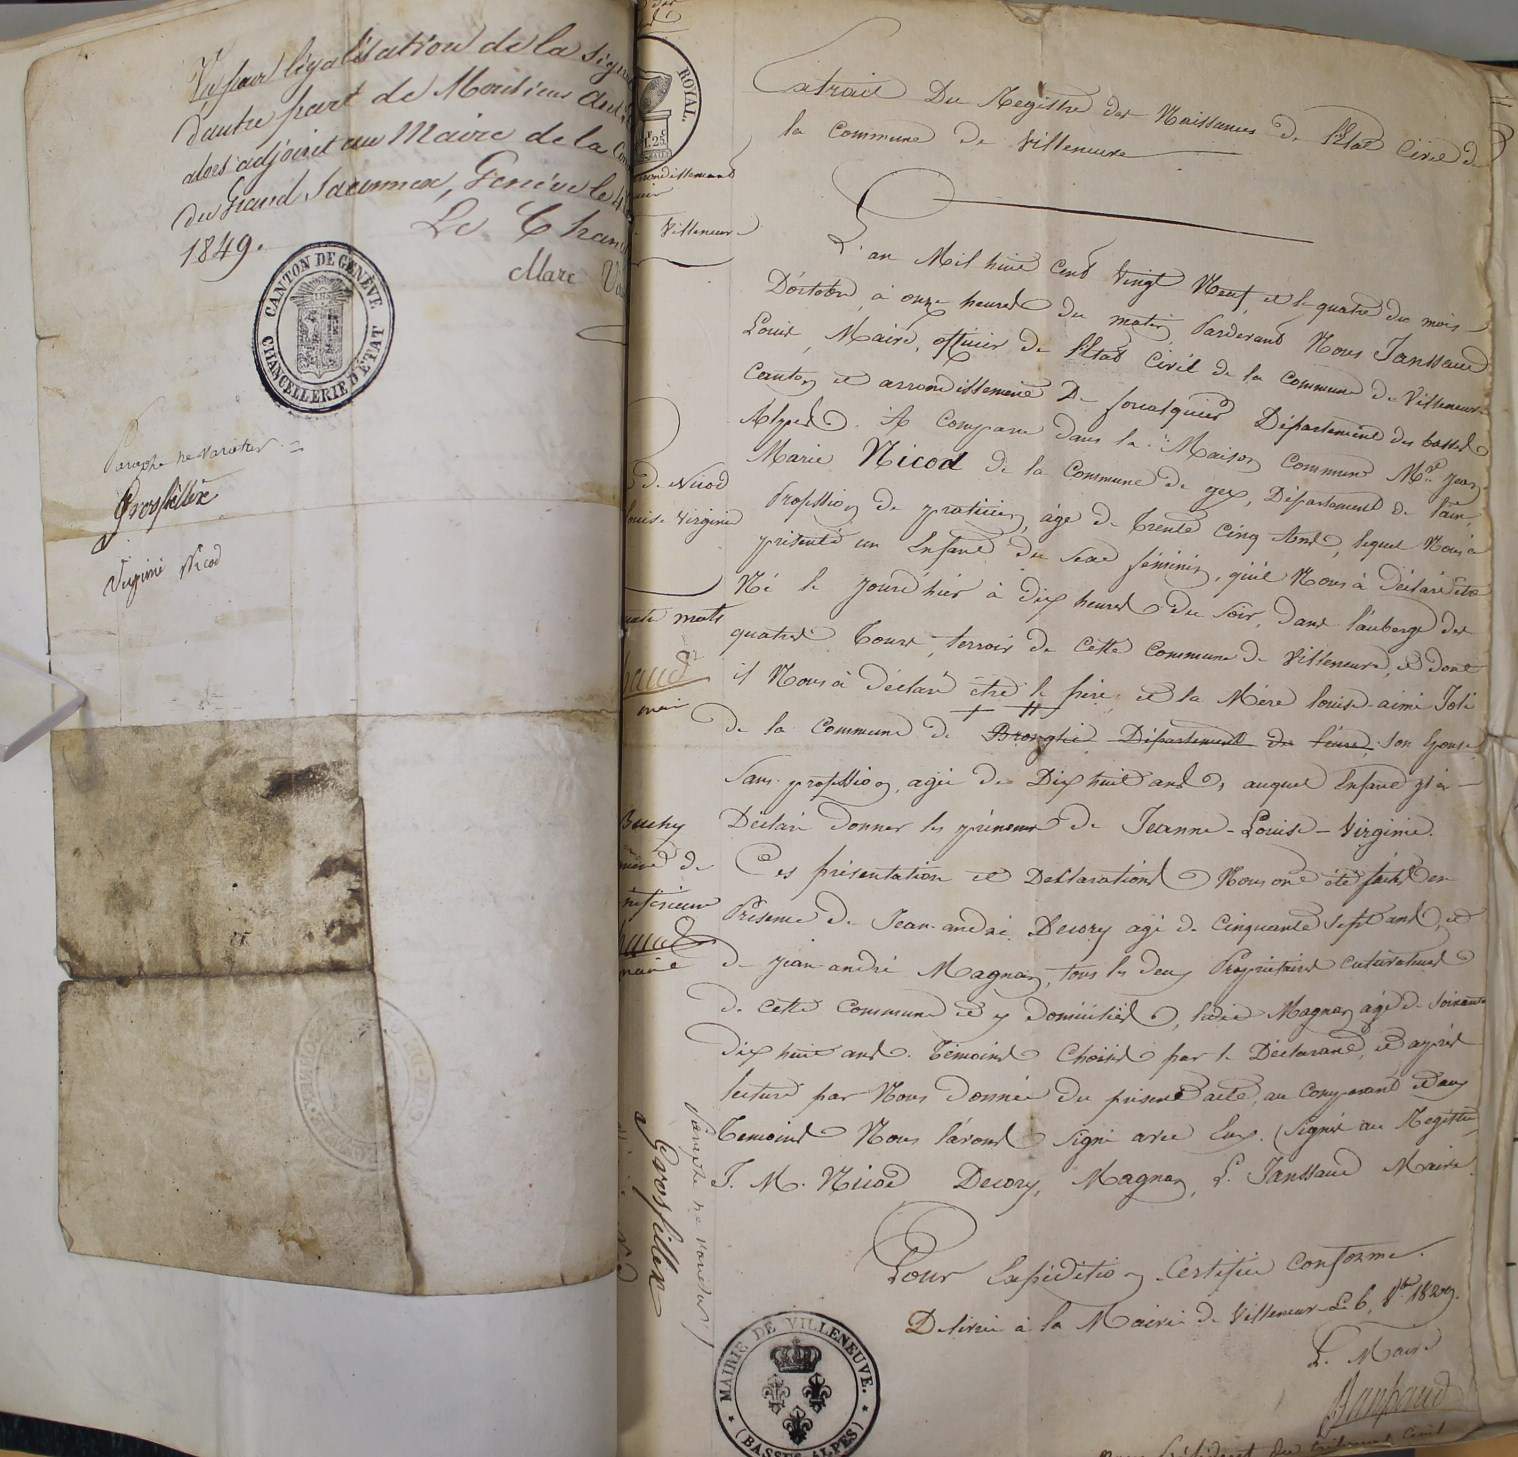 Vu pour légalisation de la sign
d'autre part de Monsieur
alors adjoint au Maire de la Com
du Grand Saconnex, Genève le 4
1849.
Le Chan
Marc
CANTON DE GENÈVE
CHANCELLERIE D'ETAT
Paraphé ne varietur
Grosfillex
Virginie Nicod
ROYAL
25
rondissement
Villeneuve
de Nicod
Louise Virginie
mots
maire
de
inférieure
maire
Paraphé ne varietur
Grosfillex
Extrait Du Registre des Naissances de l'Etat Civil de
la Commune de Villeneuve
L'an Mil huit Cent Vingt Neuf et le quatre du mois
D'octobre, à onze heures du matin Pardevant Nous Janssaud
Louis, Maire, officier de l'Etat Civil de la Commune de Villeneuve
Canton et arrondissement De forcalquier Département des basses
Alpes. A Comparu dans la Maison Commune Mr. Jean
Marie Nicod de la Commune de gex, Département de l'ain,
Profession de praticien, âgé de Trente Cinq Ans, lequel Nous a
présenté un Enfant du Sexe féminin, qu'il Nous à déclaré être
Né le jourd'hier à dix heures du soir, dans l'auberge des
quatre Tours, terroir de Cette Commune de Villeneuve, et dont
il Nous à déclaré être le père, et la Mère louise aimé Joli
de la Commune de Broglie Département de l'eure, son Epouse
Sans profession, agée de Dix huit ans, auquel Enfant il a
Déclaré donner les prénoms de Jeanne-Louise-Virginie.
Ces présentation et Déclarations Nous ont été faites en
Présence de Jean-andré Decory agé de Cinquante Sept ans, et
de jean andré Magnan, tous les deux Propriétaires cultivateurs
de cette Commune et y domiciliés, ledit Magnan âgé de Soixante
dix huit ans. Témoins Choisis par le Déclarant, et après
lecture par Nous donnée du présent acte, au Comparant et aux
Témoins Nous l'avons Signé avec Eux. (Signés au Registre,
J. M. Nicod Decory, Magnan, L. Janssaud Maire.
Pour Expédition Certifiée Conforme.
Délivrée à la Mairie de Villeneuve Le 6 8bre 1829.
Le Maire
MAIRIE DE VILLENEUVE.
(BASSES ALPES)